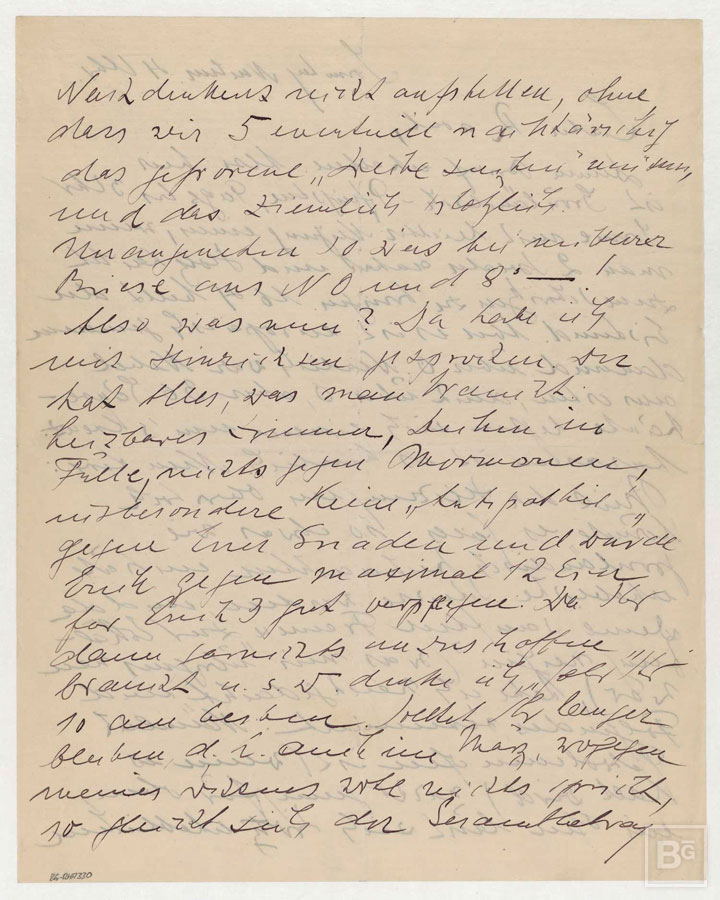 Nachdenkens nicht aufstellen, ohne
dass wir 5 eventuell nachträglich
das gefrorene „ suchen" müssen,
und das ziemlich plötzlich.
Unangenehm so was bei mittlerer
Briese aus NO und 8° — !
Also was nun? Da habe ich
mit Hinrichsen gesprochen. Der
hat Alles, was man braucht.
heizbares Zimmer, Decken in
Fülle, nichts gegen Mormonen,
insbesondere keine „Antipathie"
gegen Euer Gnaden und würde
Euch gegen maximal 12 Em
for Euch 3 gut verpflegen. Da Ihr
dann garnichts anzuschaffen
braucht u. s. w. denke ich, Ihr
so am besten. Solltet Ihr länger
bleiben, d. h. auch im März, wogegen
meines Wissens wohl nichts spricht,
so gleicht sich der Gesamtbetrag
BG-
BG